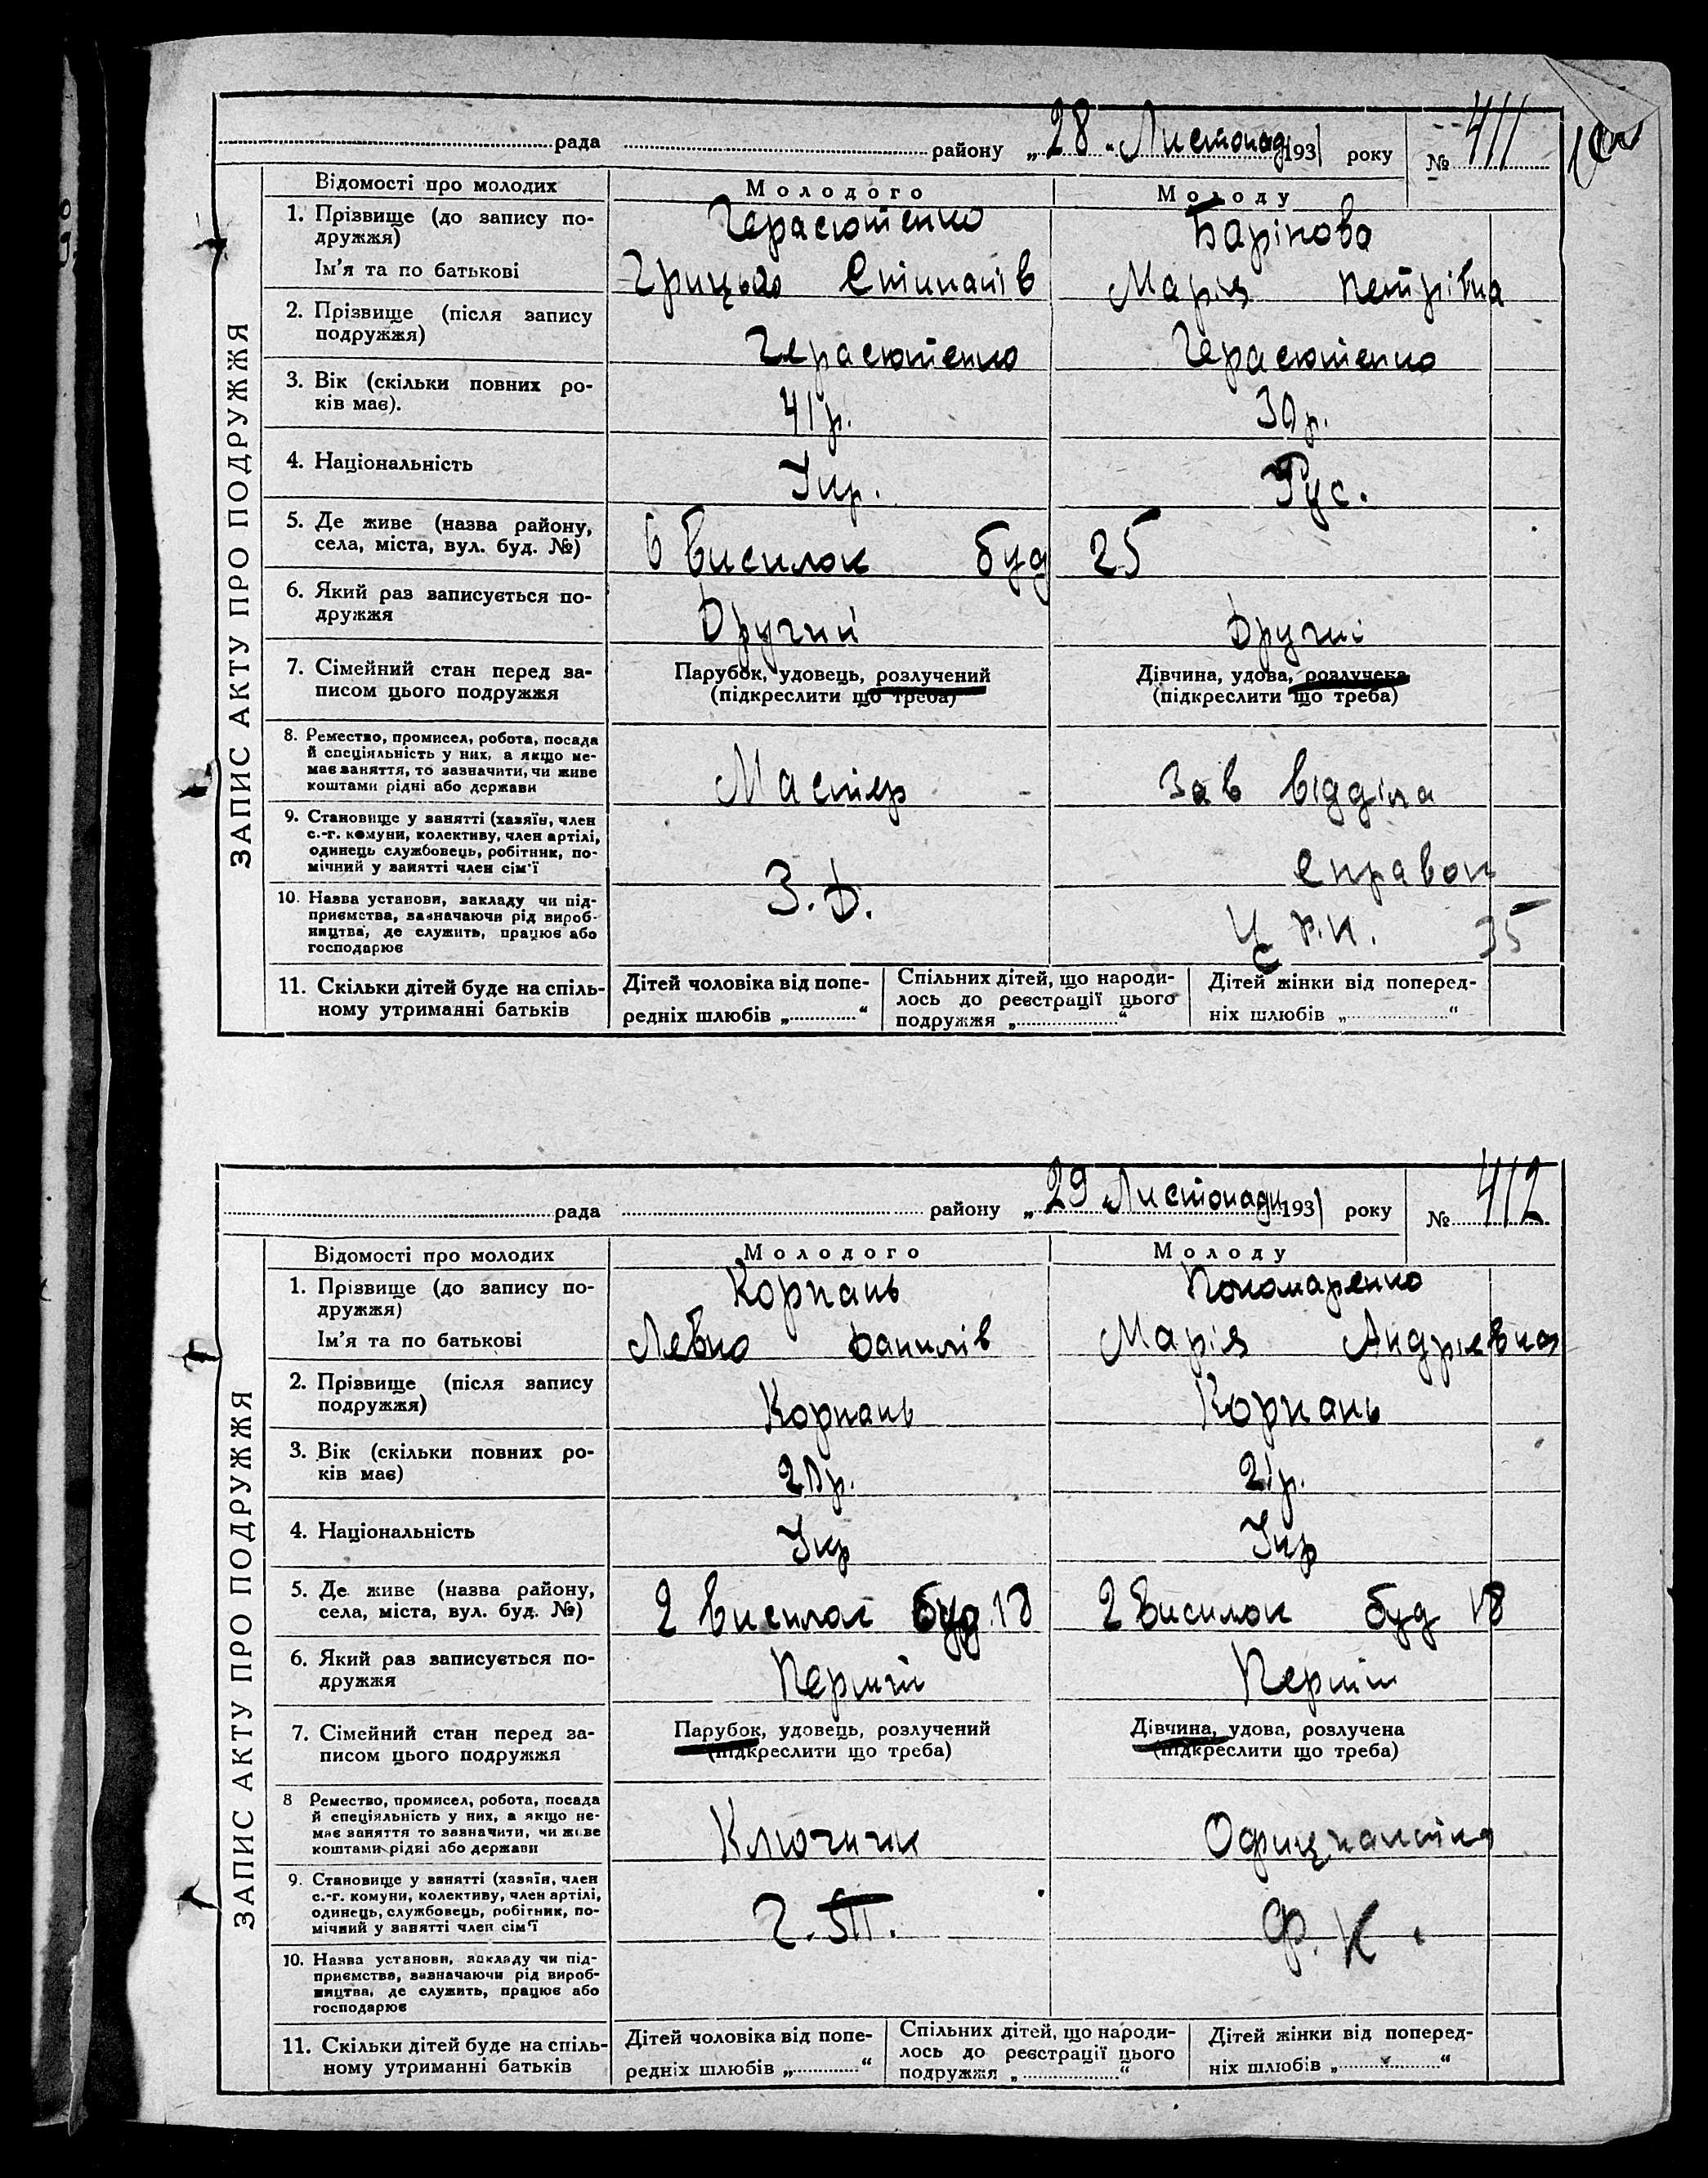 рада района „28“ Листопад 1931 року № 411
ЗАПИС АКТУ ПРО ПОДРУЖЖЯ
Відомості про молодих Молодого Молоду
1. Прізвище (до запису по- Герасютенко Барінова
дружжя)
Ім'я та по батькові Грицько Степанів Марія Петрівна
2. Прізвище (після запису
подружжя) Герасютенко Герасютенко
3. Вік (скільки повних ро-
ків має). 41 р. 30 р.
4. Національність Укр. Рус.
5. Де живе (назва району,
села, міста, вул. буд. №) 6 висилок буд 25
6. Який раз записується по-
дружжя Другий Другий
7. Сімейний стан перед за- Парубок, удовець, розлучений Дівчина, удова, розлучена
писом цього подружжя (підкреслити що треба) (підкреслити що треба)
8. Ремество, промисел, робота, посада
й спеціяльність у них, а якщо не-
має заняття, то зазначити, чи живе Мастер Зав відділа
коштами рідні або держави
9. Становище у занятті (хазяїн, член
с.-г. комуни, колективу, член артілі,
одинець службовець, робітник, по- справок
мічний у занятті член сім'ї
10. Назва установи, закладу чи під- З. Д.
приємства, зазначаючи рід вироб-
ництва, де служить, працює або 35
господарює
11. Скільки дітей буде на спіль- Дітей чоловіка від попе- Спільних дітей, що народи- Дітей жінки від поперед-
ному утриманні батьків редніх шлюбів „ “ лось до реєстрації цього ніх шлюбів „ “
подружжя „ “
рада району „29 Листопада 1931 року № 412
ЗАПИС АКТУ ПРО ПОДРУЖЖЯ
Відомості про молодих Молодого Молоду
1. Прізвище (до запису по- Корпань Пономаренко
дружжя)
Ім'я та по батькові Левко Данилів Марія Андріевна
2. Прізвище (після запису
подружжя) Корпань Корпань
3. Вік (скільки повних ро-
ків має) р. 21 р.
4. Національність Укр Укр
5. Де живе (назва району,
села, міста, вул. буд. №) 2 висилок буд. 18 2 висилок буд 18
6. Який раз записується по-
дружжя Перший Перший
7. Сімейний стан перед за- Парубок, удовець, розлучений Дівчина, удова, розлучена
писом цього подружжя (підкреслити що треба) (підкреслити що треба)
8 Ремество, промисел, робота, посада
й спеціяльність у них, а якщо не-
має заняття то зазначити, чи живе Ключник Официнантка
коштами рідні або держави
9. Становище у занятті (хазяїн, член
с.-г. комуни, колективу, член артілі,
одинець, службовець, робітник, по-
мічний у занятті член сім'ї Ф. К.
10. Назва установи, закладу чи під-
приємства, зазначаючи рід вироб-
ництва, де служить, працює або
господарює
11. Скільки дітей буде на спіль- Дітей чоловіка від попе- Спільних дітей, що народи- Дітей жінки від поперед-
ному утриманні батьків редніх шлюбів „ “ лось до реєстрації цього ніх шлюбів „ “
подружжя „ “